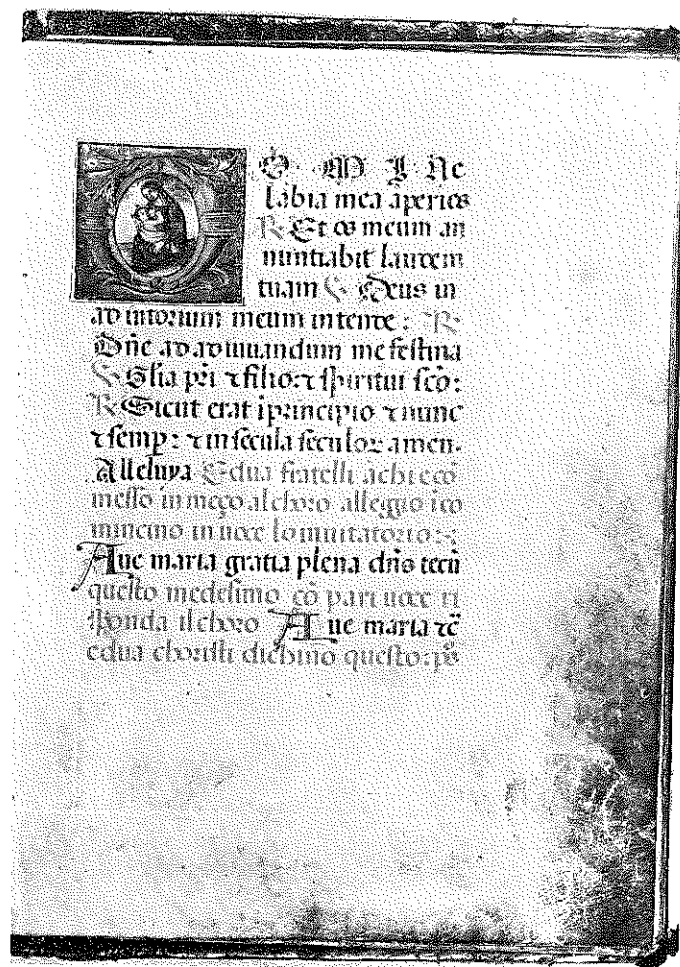 O M I Ne
labia mea aperies
R Et os meum an
nuntiabit laudem
tuam V Deus in
adiutorium meum intende: R
Dñe ad adiuuandum me festina
V Glia pri ⁊ filio ⁊ spiritui sco:
R Sicut erat i principio ⁊ nunc
⁊ semp: ⁊ in secula seculoꝝ amen.
Alleluya E dua fratelli a chi e co
messo in mezo al choro al leggio ico
mincino in uoce lo inuitatorio:
Aue maria gratia plena dñs tecũ
questo medesimo cõ pari uoce ri
sponda il choro Aue maria ⁊c̃
e dua choristi dichino questo: ps̃